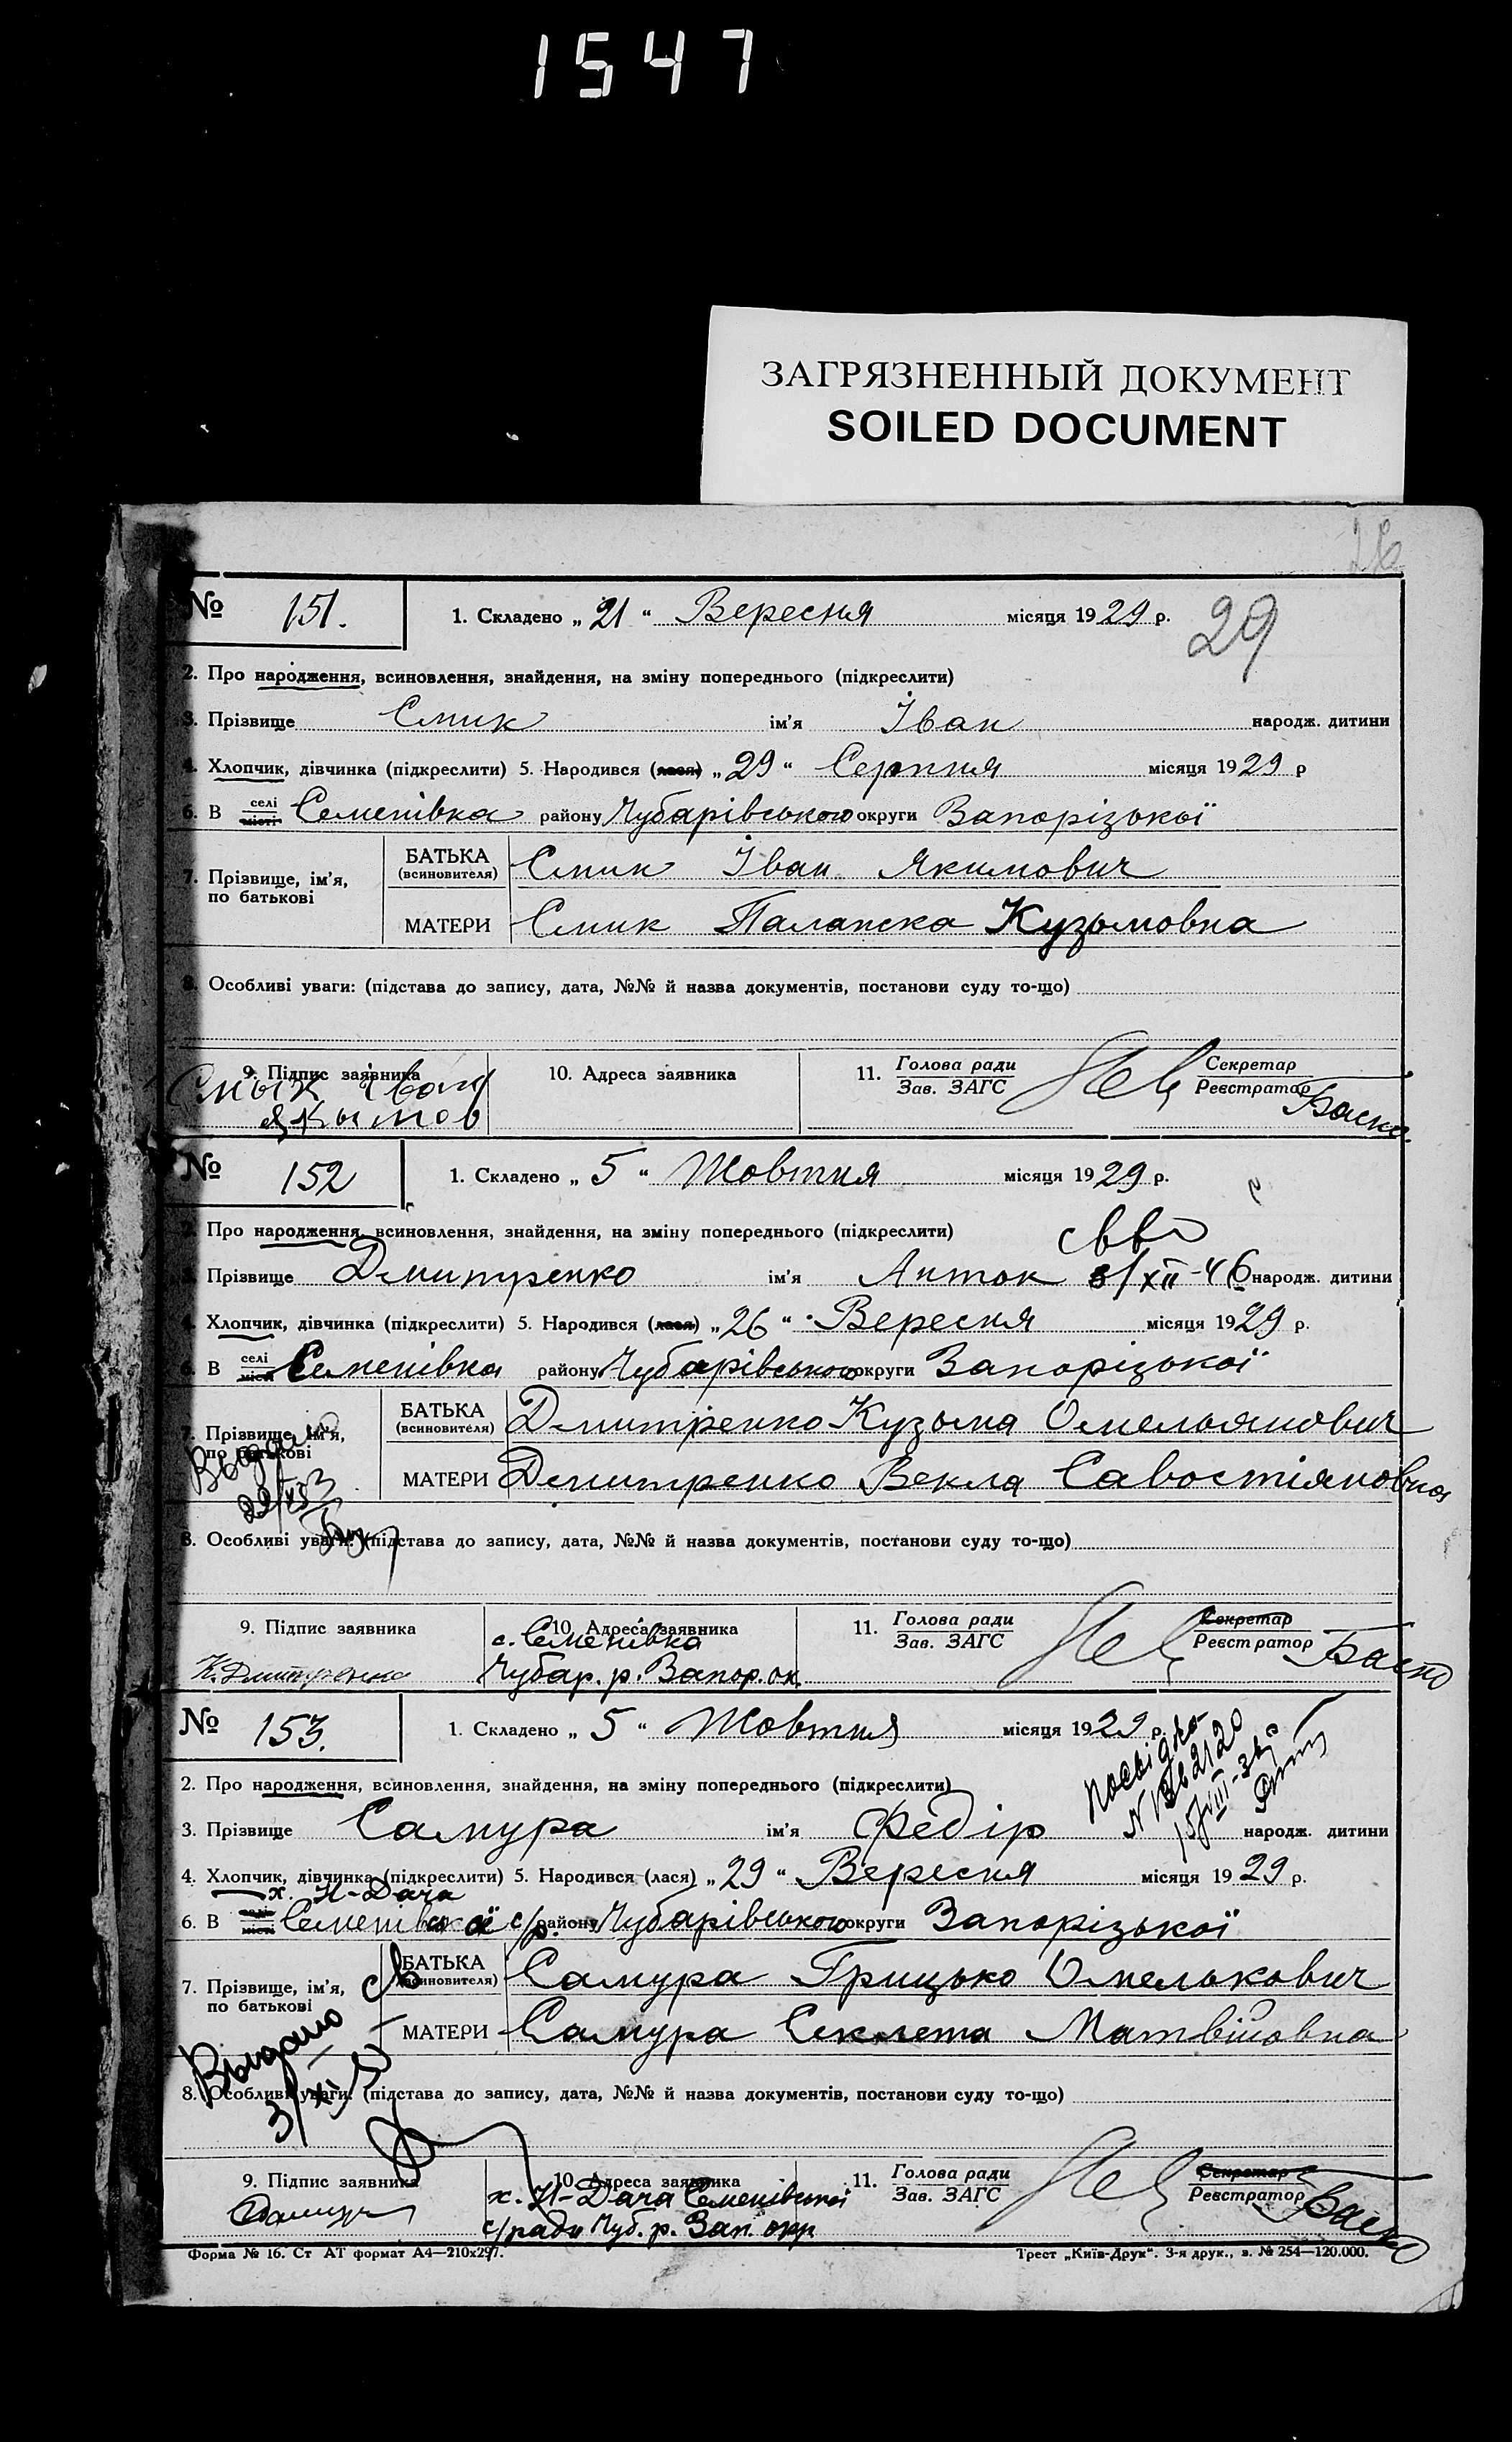 1547
ЗАГРЯЗНЕННЫЙ ДОКУМЕНТ
SOILED DOCUMENT
26
29
№ 151. 1. Складено „ 21 “ Вересня місяця 1929 р.
2. Про народження, всиновлення, знайдення, на зміну попереднього (підкреслити)
3. Прізвище Смик ім'я Іван народж. дитини
4. Хлопчик, дівчинка (підкреслити) 5. Народився (лася) „ 29 “ Серпня місяця 1929 р
6. В селі місті Семенівка району Чубарівського округи Запорізької
7. Прізвище, ім'я, по батькові БАТЬКА (всиновителя) Смик Іван Якимович
МАТЕРИ Смик Палажка Кузьмовна
8. Особливі уваги: (підстава до запису, дата, №№ й назва документів, постанови суду то-що)
9. Підпис заявника 10. Адреса заявника 11. Голова ради Зав. ЗАГС Секретар Реєстратор
Смык Іван
Якымов
№ 152 1. Складено „ 5 “ Жовтня місяця 1929 р.
2. Про народження, всиновлення, знайдення, на зміну попереднього (підкреслити)
3. Прізвище Дмитренко ім'я Антон 3/XII-46 народж. дитини
4. Хлопчик, дівчинка (підкреслити) 5. Народився (лася) „ 26 “ Вересня місяця 1929 р.
6. В селі місті Семенівка району Чубарівського округи Запорізької
7. Прізвище, ім'я, по батькові БАТЬКА (всиновителя) Дмитренко Кузьма Омельянович
МАТЕРИ Дмитренко Векла Савостіяновна
Выдано
8. Особливі уваги: (підстава до запису, дата, №№ й назва документів, постанови суду то-що)
9. Підпис заявника 10. Адреса заявника 11. Голова ради Зав. ЗАГС Секретар Реєстратор
К. Дмитренко с. Семенівка
Чубар. р. Запор. ок.
№ 153. 1. Складено „ 5 “ Жовтня місяця 1929 р.
посвідка
2. Про народження, всиновлення, знайдення, на зміну попереднього (підкреслити)
3. Прізвище Самура ім'я Федір народж. дитини
4. Хлопчик, дівчинка (підкреслити) 5. Народився (лася) „ 29 “ Вересня місяця 1929 р.
х. Н-Дача
6. В селі місті Семенівської с/р. району Чубарівського округи Запорізької
7. Прізвище, ім'я, по батькові БАТЬКА (всиновителя) Самура Грицько Омелькович
МАТЕРИ Самура Секлета Матвійовна
Выдано
8. Особливі уваги: (підстава до запису, дата, №№ й назва документів, постанови суду то-що)
9. Підпис заявника 10. Адреса заявника 11. Голова ради Зав. ЗАГС Секретар Реєстратор
х. Н-Дача Семенівської
с/ради Чуб. р. Зап. окр
Форма № 16. Ст АТ формат А4—210х297. Трест „Київ-Друк“. 3-я друк., з. № 254—120.000.